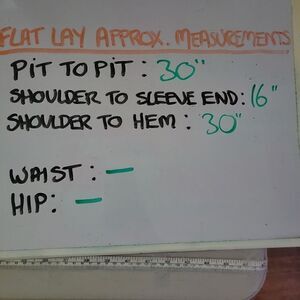 FLAT LAY APPROX. MEASUREMENTS
PIT TO PIT : 30"
SHOULDER TO SLEEVE END: 16"
SHOULDER TO HEM : 30"
WAIST : —
HIP: —